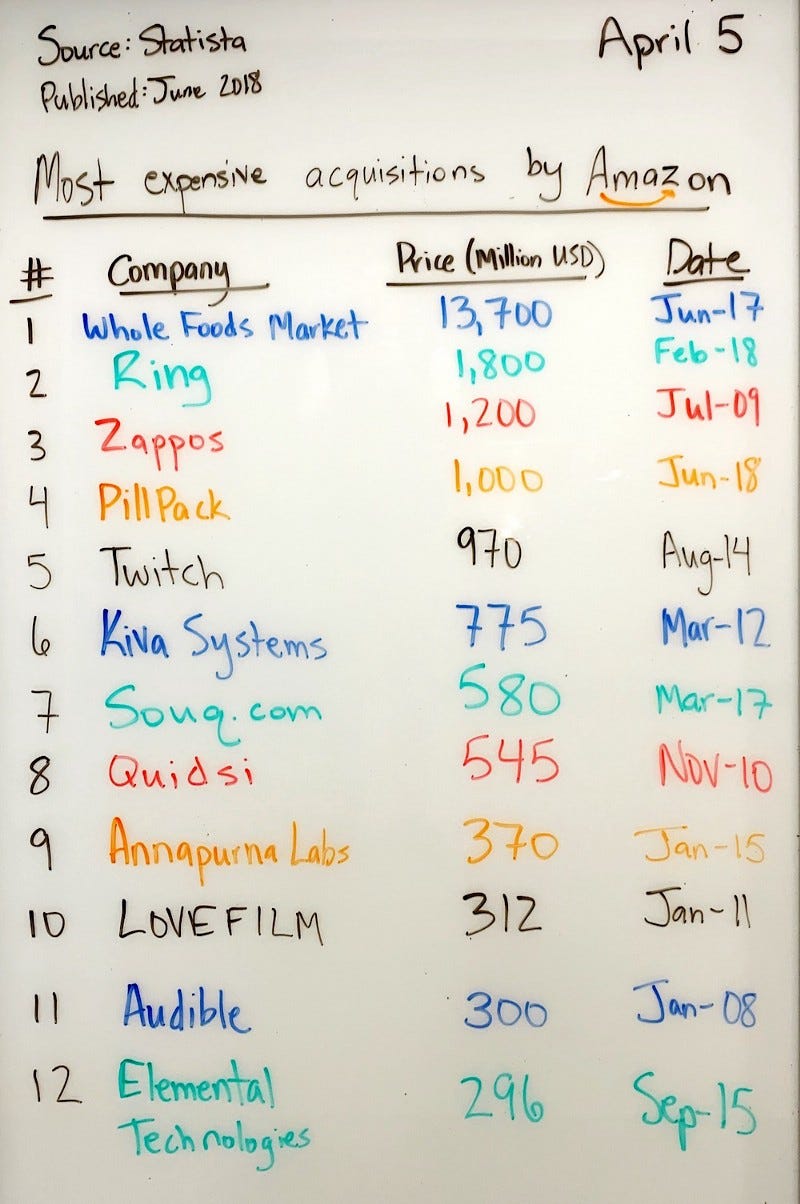 Source: Statista
April 5
Published: June 2018
Most expensive acquisitions by Amazon
# Company Price (Million USD) Date
1 Whole Foods Market 13,700 Jun-17
2 Ring 1,800 Feb-18
3 Zappos 1,200 Jul-09
4 PillPack 1,000 Jun-18
5 Twitch 970 Aug-14
6 Kiva Systems 775 Mar-12
7 Souq.com 580 Mar-17
8 Quidsi 545 Nov-10
9 Annapurna Labs 370 Jan-15
10 LOVEFILM 312 Jan-11
11 Audible 300 Jan-08
12 Elemental 296 Sep-15
Technologies